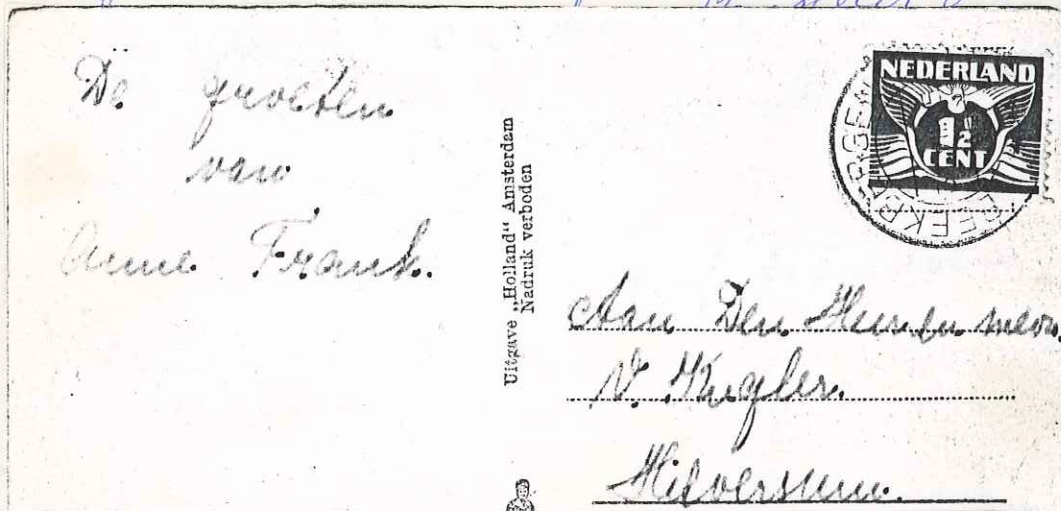 De groeten
van
Anne Frank.
Uitgave „Holland“ Amsterdam
Nadruk verboden
NEDERLAND
1½
CENT
BEEKBERGEN
Aan Den Heer en mevr.
V. Kugler.
Hilversum.